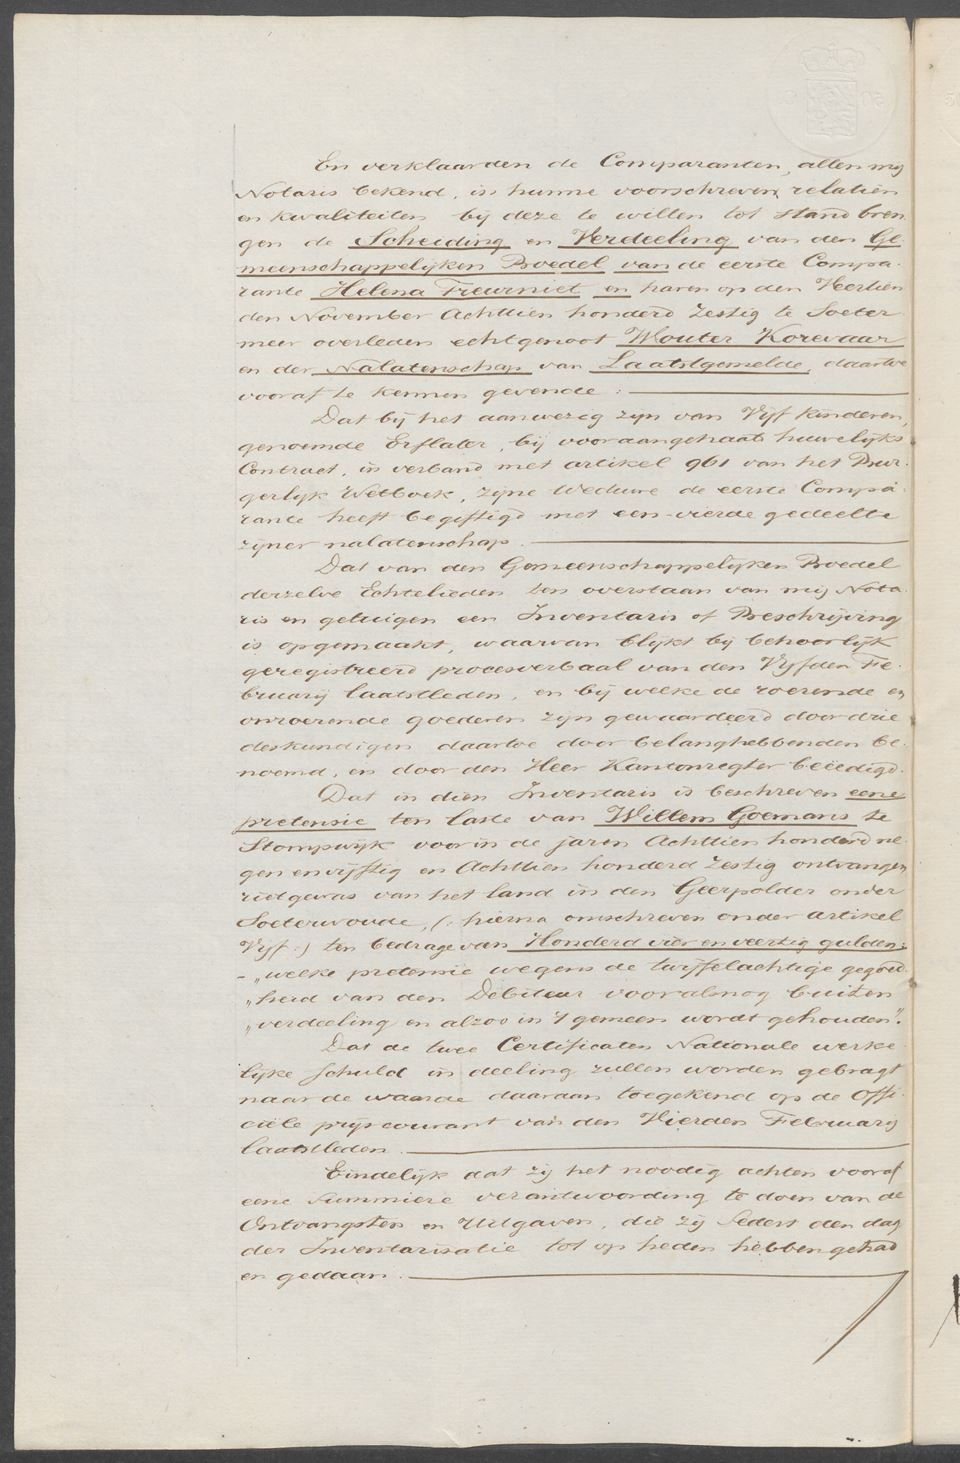 En verklaarden de Comparanten, allen mij
Notaris bekend, in hunne voorschreven relatiën
en kwaliteiten bij deze te willen tot stand bren
gen de Scheiding en Verdeeling van den Ge
meenschappelijken Boedel van de eerste Compa-
rante Helena Treurniet en haren op den Veertien
den November Achttien honderd Zestig te Soeter
meer overleden echtgenoot Wouter Korevaar
en der Nalatenschap van Laatstgemelde, daartoe
vooraf te kennen gevende:
Dat bij het aanwezig zijn van Vijf kinderen,
genoemde Erflater, bij vooraangehaald huwelijks
Contract, in verband met artikel 961 van het Bur-
gerlijk Wetboek, zijne Weduwe de eerste Compa-
rante heeft begiftigd met een-vierde gedeelte
zijner nalatenschap.
Dat van den Gemeenschappelijken Boedel
derzelve Echtelieden ten overstaan van mij Nota-
ris en getuigen een Inventaris of Beschrijving
is opgemaakt, waarvan blijkt bij behoorlijk
geregistreerd procesverbaal van den Vijfden Fe-
bruarij laatstleden, en bij welke de roerende en
onroerende goederen zijn gewaardeerd door drie
deskundigen daartoe door belanghebbenden be-
noemd, en door den Heer Kantonregter beëedigd.
Dat in dien Inventaris is beschreven eene
pretensie ten laste van Willem Goemans te
Stompwijk voor in de jaren Achttien honderd ne-
gen en vijftig en Achttien honderd Zestig ontvangen
rietgewas van het land in den Geerpolder onder
Soeterwoude, (: hierna omschreven onder artikel
Vijf :) ten bedrage van Honderd vier en veertig gulden;
- „welke pretensie wegens de twijfelachtige gegoed-
„heid van den Debiteur vooralsnog buiten
„verdeeling en alzoo in 't gemeen wordt gehouden".
Dat de twee Certificaten Nationale werke-
lijke schuld in deeling zullen worden gebragt
naar de waarde daaraan toegekend op de Offi-
ciële prijscourant van den Vierden Februarij
laatstleden.
Eindelijk dat zij het noodig achten vooraf
eene summiere verantwoording te doen van de
Ontvangsten en Uitgaven, die zij sedert den dag
der Inventarisatie tot op heden hebben gehad
en gedaan.